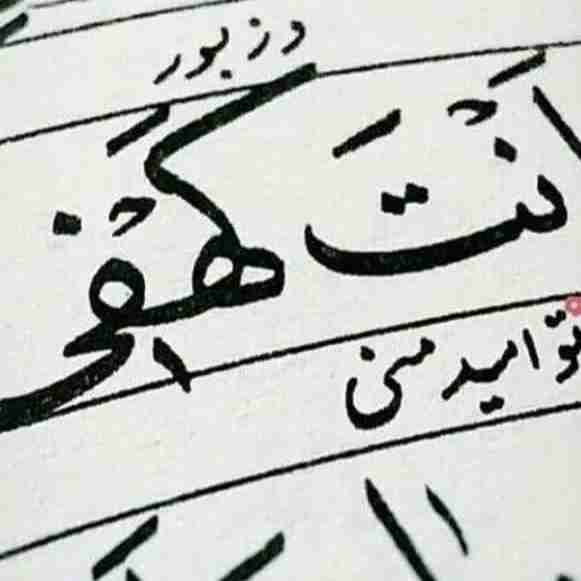 در زبور
اَنْتَ كَهْفى
تو امید منی